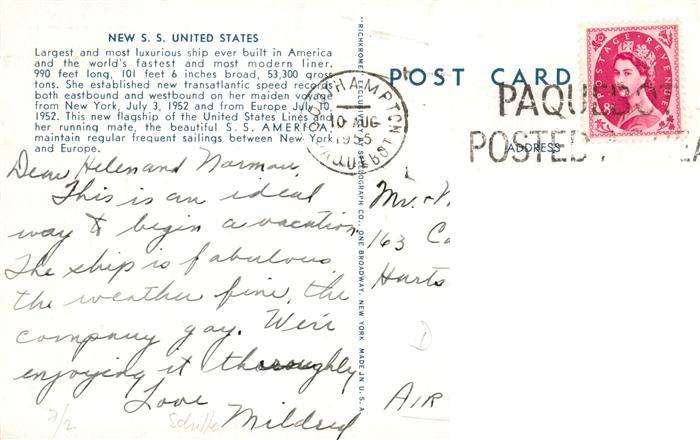 NEW S. S. UNITED STATES
Largest and most luxurious ship ever built in America
and the world's fastest and most modern liner.
990 feet long, 101 feet 6 inches broad, 53,300 gross
tons. She established new transatlantic speed records
both eastbound and westbound on her maiden voyage
from New York, July 3, 1952 and from Europe July 10,
1952. This new flagship of the United States Lines and
her running mate, the beautiful S. S. AMERICA,
maintain regular frequent sailings between New York
and Europe.
Dear Helen and Norman,
This is an ideal
way to begin a vacation
The ship is fabulous
the weather fine, the
company gay. We're
enjoying it thoroughly
Love
Mildred
SOUTHAMPTON
10 AUG
1955
PAQUEBOT
POST CARD
PAQUEBO
POSTED
ADDRESS
POSTAGE REVENUE
Mr. +
163
Harts
AIR